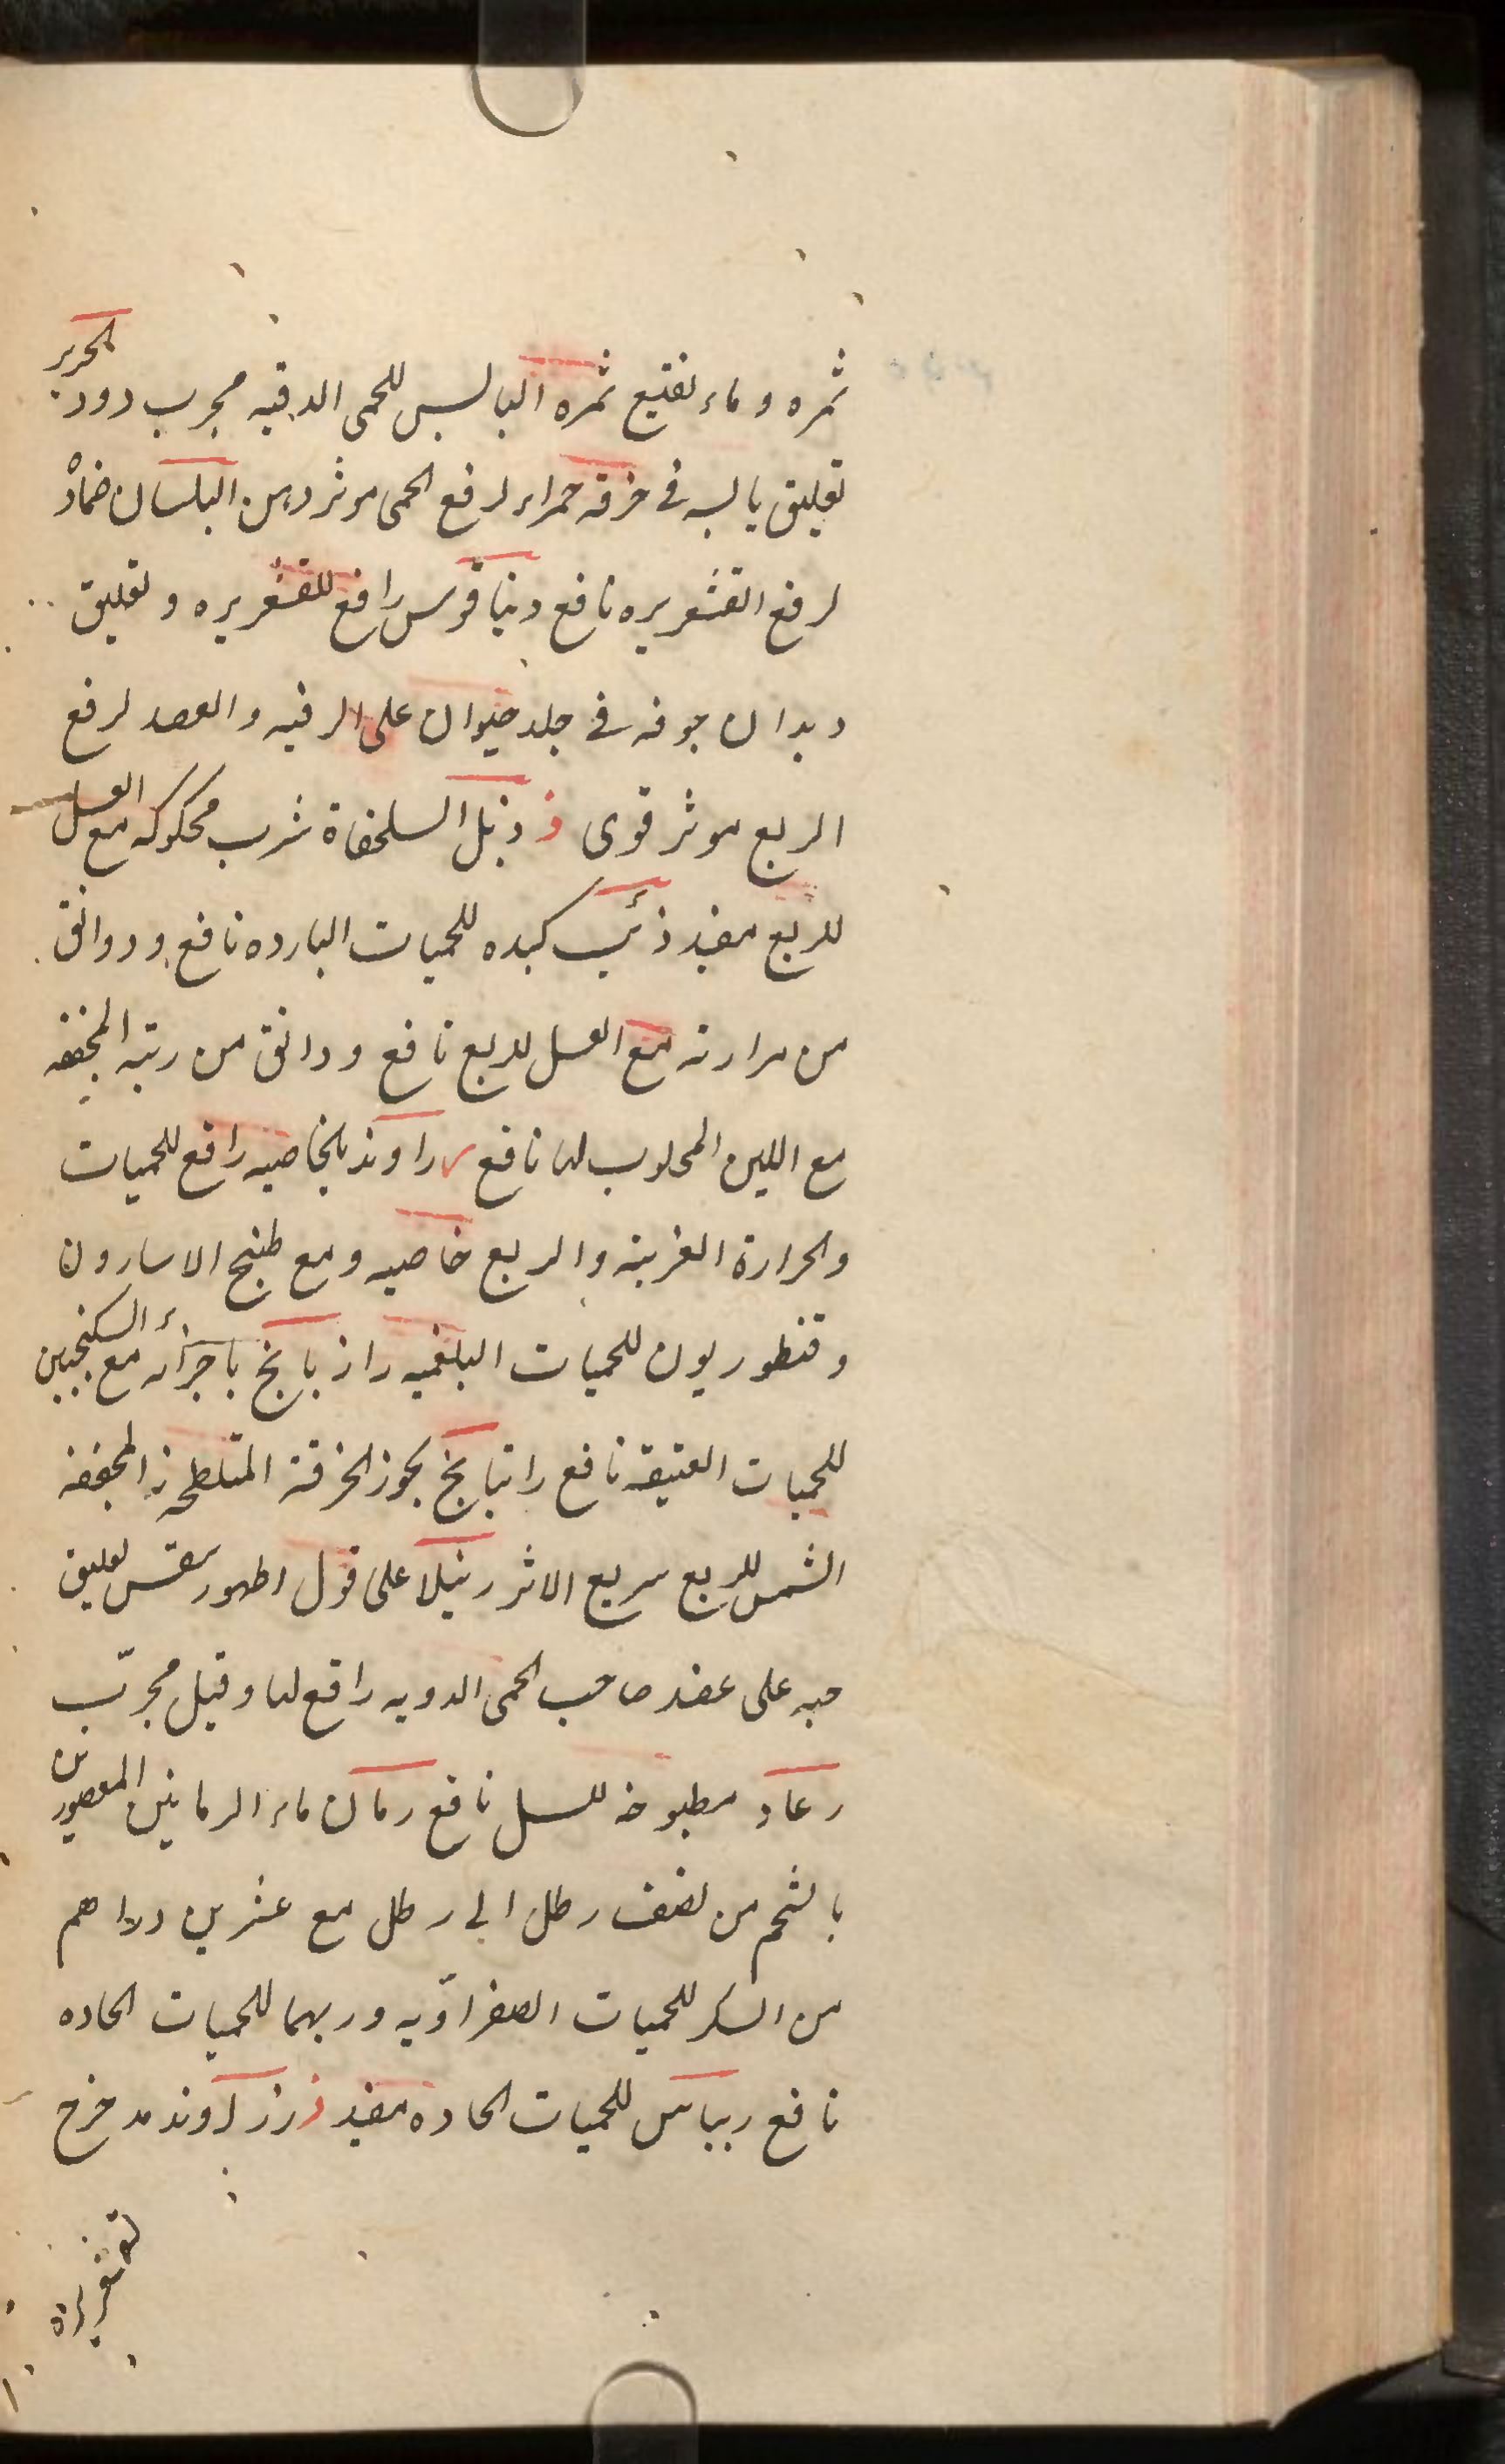 ثمره وماء نقيع ثمره اليابس للحمى الدقيه مجرب دود الحرير
تعليق يابسه فى خرقه حمراء لرفع الحمى موثر دهن البلسان ضمادً
لرفع القشعريره نافع دنيا قوس رافع للقشعريره وتعليق
ديدان جوفه فى جلد حيوان على الرقبه والعضد لرفع
الربع موثر قوى ذ ذبل السلحفاة شرب محكوكه مع العسل
للربع مفيد ذئب كبده للحميات البارده نافع ودوانق
من مرارته مع العسل للربع نافع ودانق من ريته المجففه
مع اللبن المحلوب لها نافع ر راوند بالخاصيه رافع للحميات
والحرارة الغريبة والربع خاصيه ومع طبخ الاسارون
وقنطوريون للحميات البلغميه رازيانج باجزائه مع السكنجبين
للحميات العتيقه نافع راتيانج بخور الخرقة المتلطخه المجففه
الشمس للربع سريع الاثر رتيلا على قول اطهورسفس تعليق
حبه على عضد صاحب الحمى الدوريه رافع لها وقيل مجرّب
رعاد مطبوخه للسل نافع رمان ماء الرمانين المعصورين
بالشحم من نصف رطل الى رطل مع عشرين دراهم
من السكر للحميات الصفراويه وربهما للحميات الحاده
نافع ريباس للحميات الحاده مفيد ز زراوند مدحرج
لقشعريرة